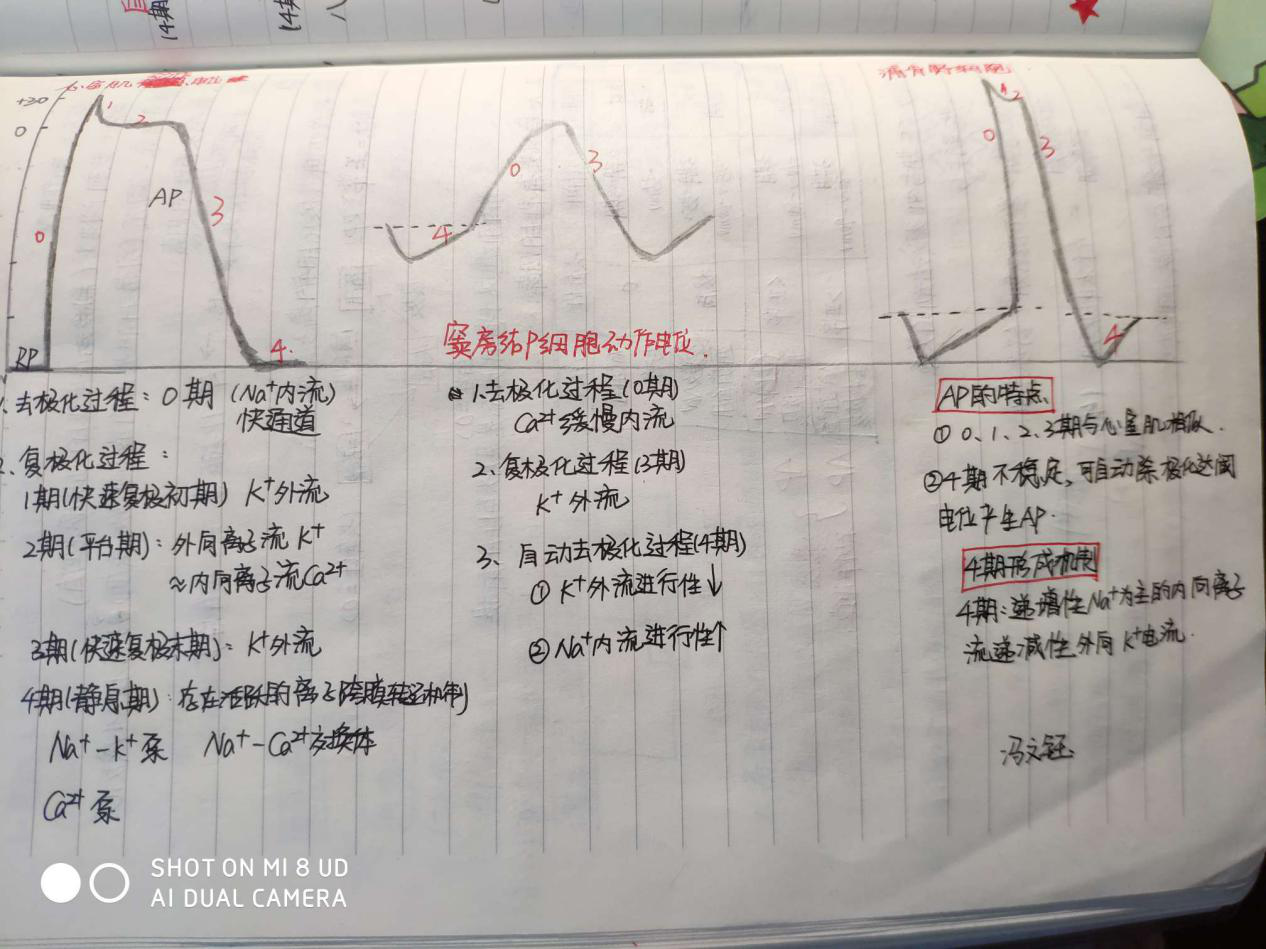 14期
14期
+30
0
RP
心室肌 电位
1
2
AP
0
3
4
1.去极化过程：0期（Na⁺内流）
快通道
2、复极化过程：
1期(快速复极初期) K⁺外流
2期(平台期)：外向离子流 K⁺
≈内向离子流Ca²⁺
3期(快速复极末期)：K⁺外流
4期(静息期)：存在活跃的离子跨膜转运机制
Na⁺-K⁺泵 Na⁺-Ca²⁺交换体
Ca²⁺泵
0
3
4
窦房结P细胞动作电位.
1.去极化过程(0期)
Ca²⁺缓慢内流
2、复极化过程(3期)
K⁺外流
3、自动去极化过程(4期)
① K⁺外流进行性↓
② Na⁺内流进行性↑
浦肯野细胞
1
2
0
3
4
AP的特点
① 0、1、2、3期与心室肌相似.
②4期不稳定,可自动除极化达阈
电位产生AP.
4期形成机制
4期：递增性Na⁺为主的内向离子
流递减性外向K⁺电流.
冯文钰
SHOT ON MI 8 UD
AI DUAL CAMERA